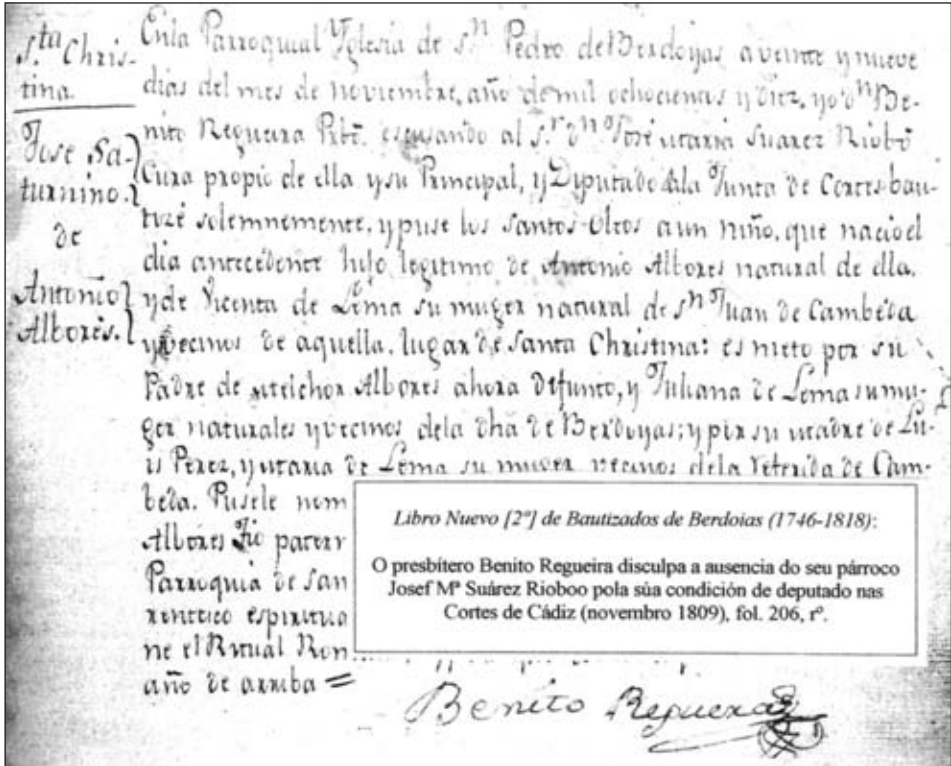 S.ta Chris-
tina.
Jose Sa-
turnino.
de
Antonio
Albores.
En la Parroquial Yglesia de S.n Pedro de Berdoyas a veinte y nueve
dias del mes de noviembre, año de mil ochocientos y diez, yo d.n Be-
nito Regueira Pbro. escusando al s.r d.n José Maria Suarez Riobo
Cura propio de ella y su Principal, y Diputado à la Junta de Cortes bau-
tizé solemnemente, y puse los Santos Oleos a un niño, que nacio el
dia antecedente hijo legitimo de Antonio Albores natural de ella,
y de Vicenta de Lema su muger natural de s.n Juan de Cambeda
y vecinos de aquella, lugar de Santa Christina: es nieto por su
Padre de Melchor Albores ahora difunto, y Juliana de Lema su mu-
ger naturales y vecinos de la dha de Berdoyas; y por su Madre de Lu-
is Perez, y Maria de Lema su muger vecinos de la referida de Cam-
beda. Pusele nom
Albores
Parroquia de San
espiritua
ne el Ritual Rom
año de arriba =
Benito Regueira
Libro Nuevo [2º] de Bautizados de Berdoias (1746-1818):
O presbítero Benito Regueira disculpa a ausencia do seu párroco
Josef Mª Suárez Rioboo pola súa condición de deputado nas
Cortes de Cádiz (novembro 1809), fol. 206, rº.